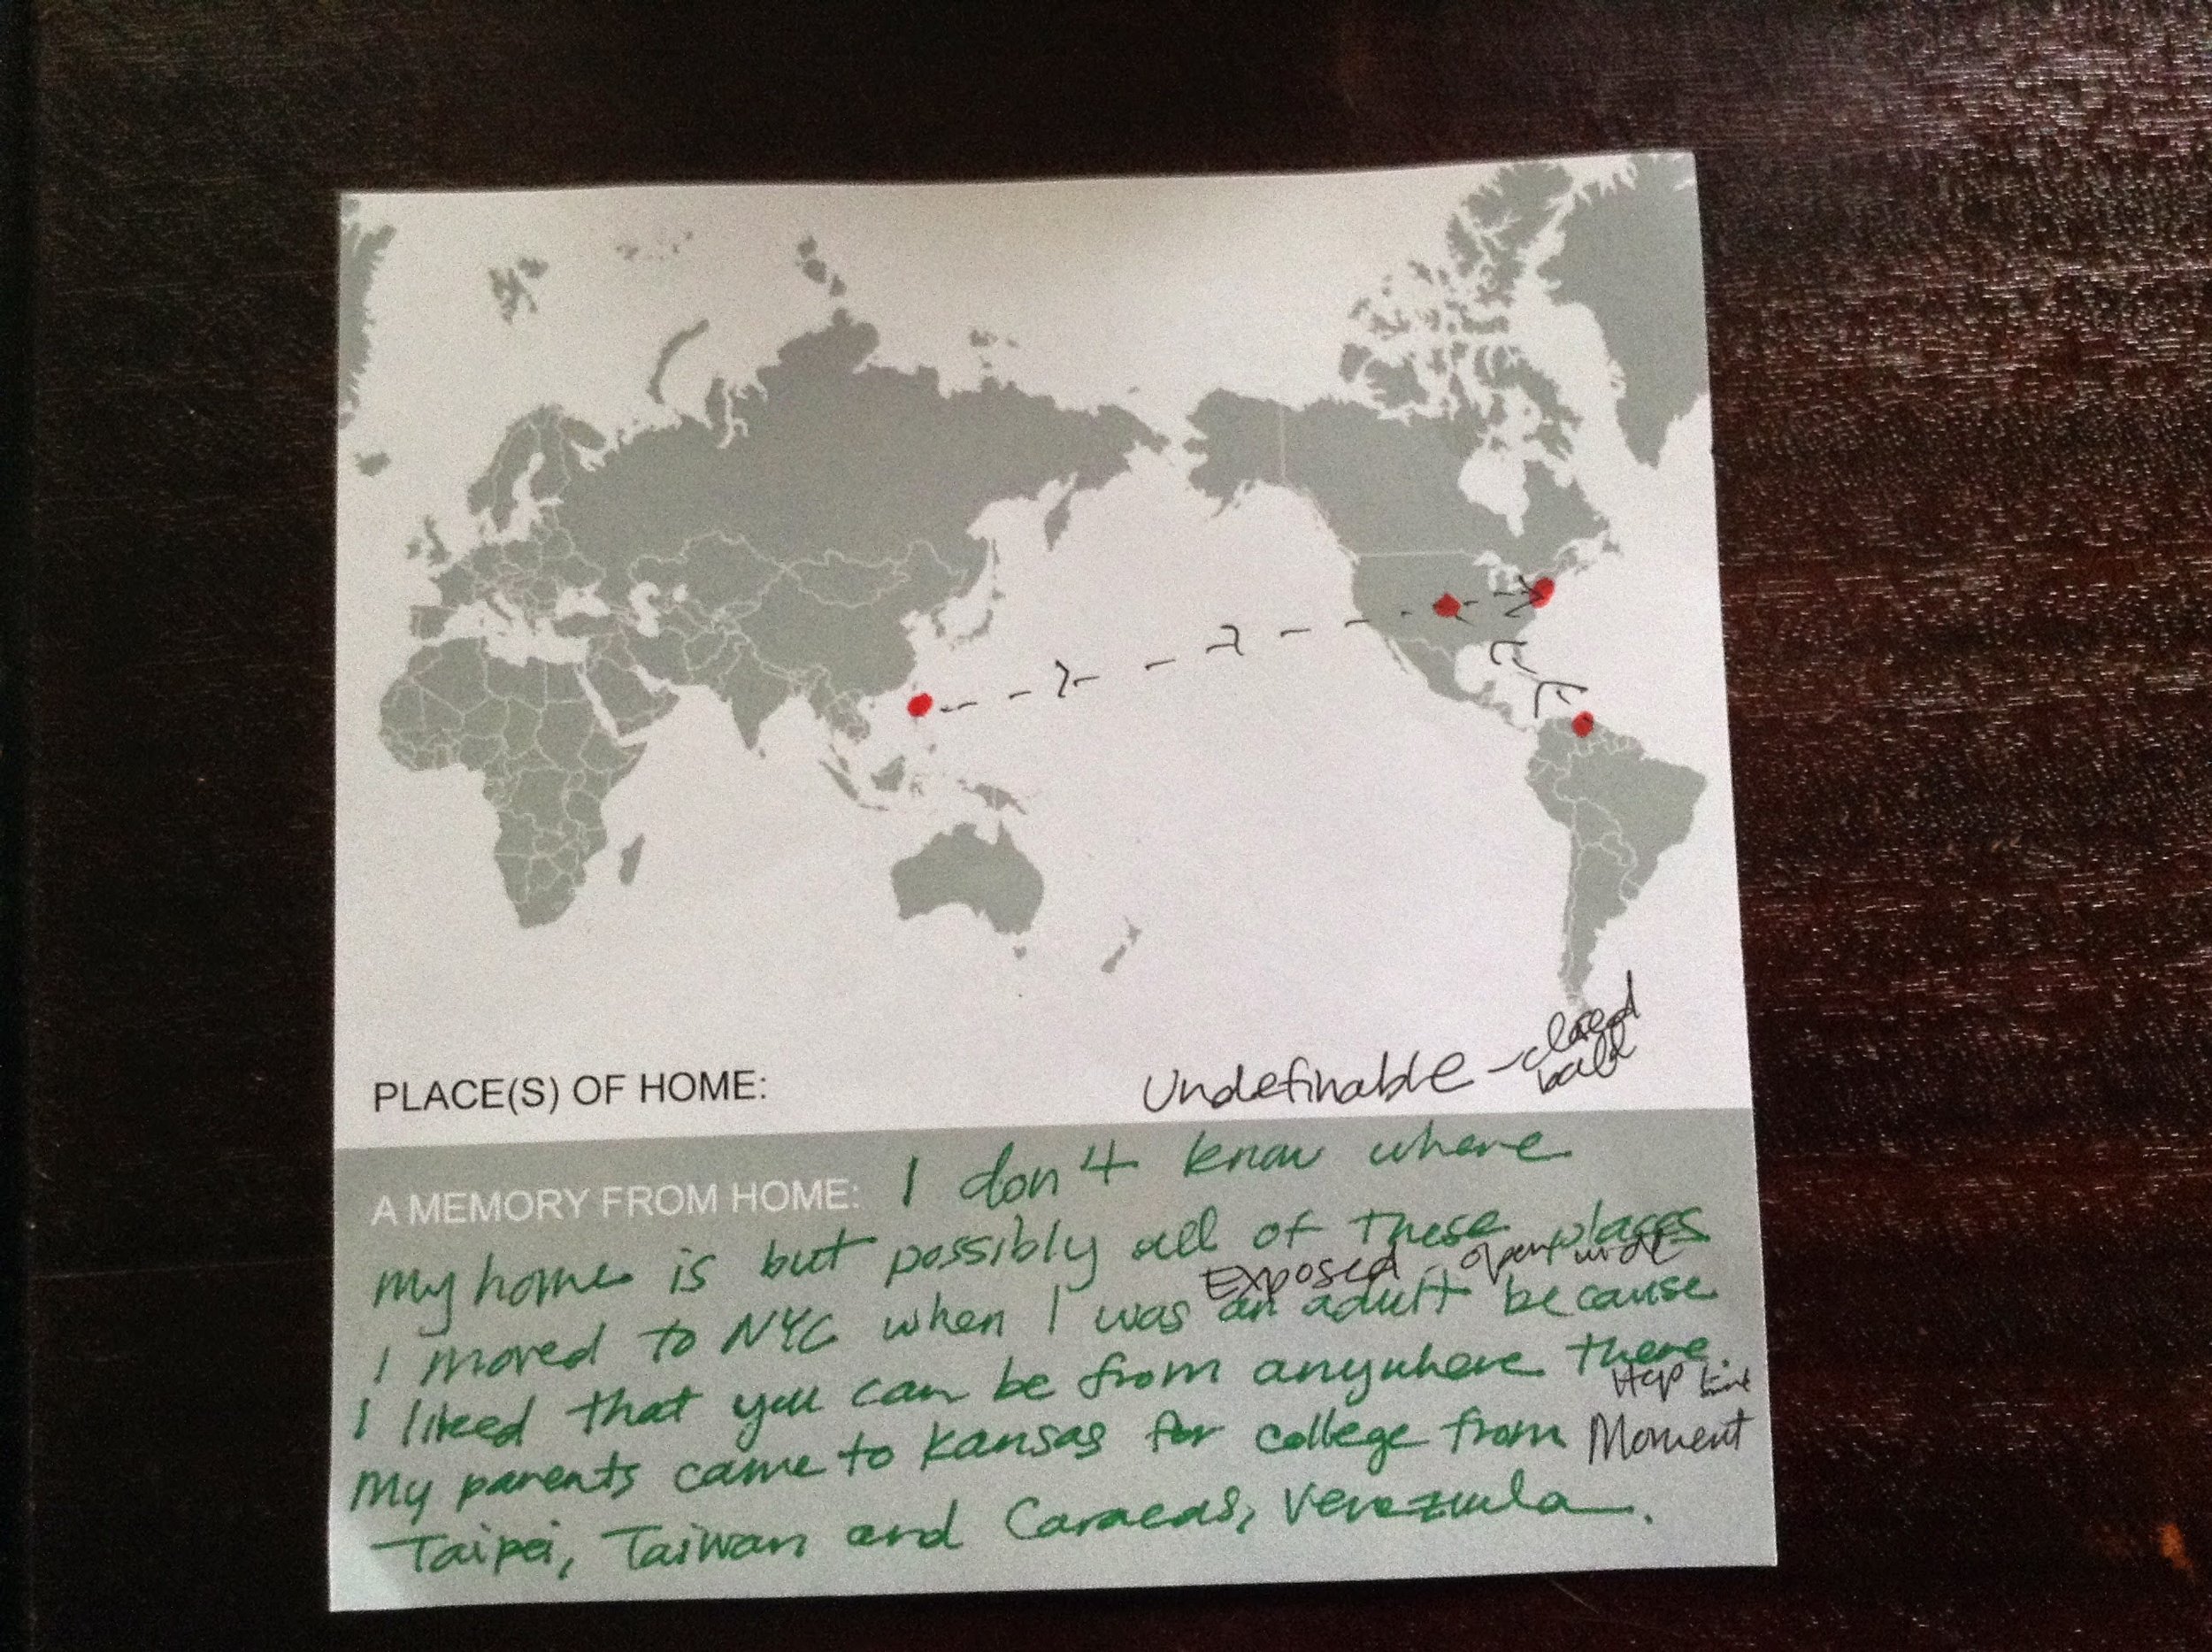 PLACE(S) OF HOME:
Undefinable - closed
A MEMORY FROM HOME: I don't know where
my home is but possibly all of these places
Exposed - open wide
I moved to NYC when I was an adult because
I liked that you can be from anywhere there.
My parents came to Kansas for college from
Moment
Taipei, Taiwan and Caracas, Venezuela.